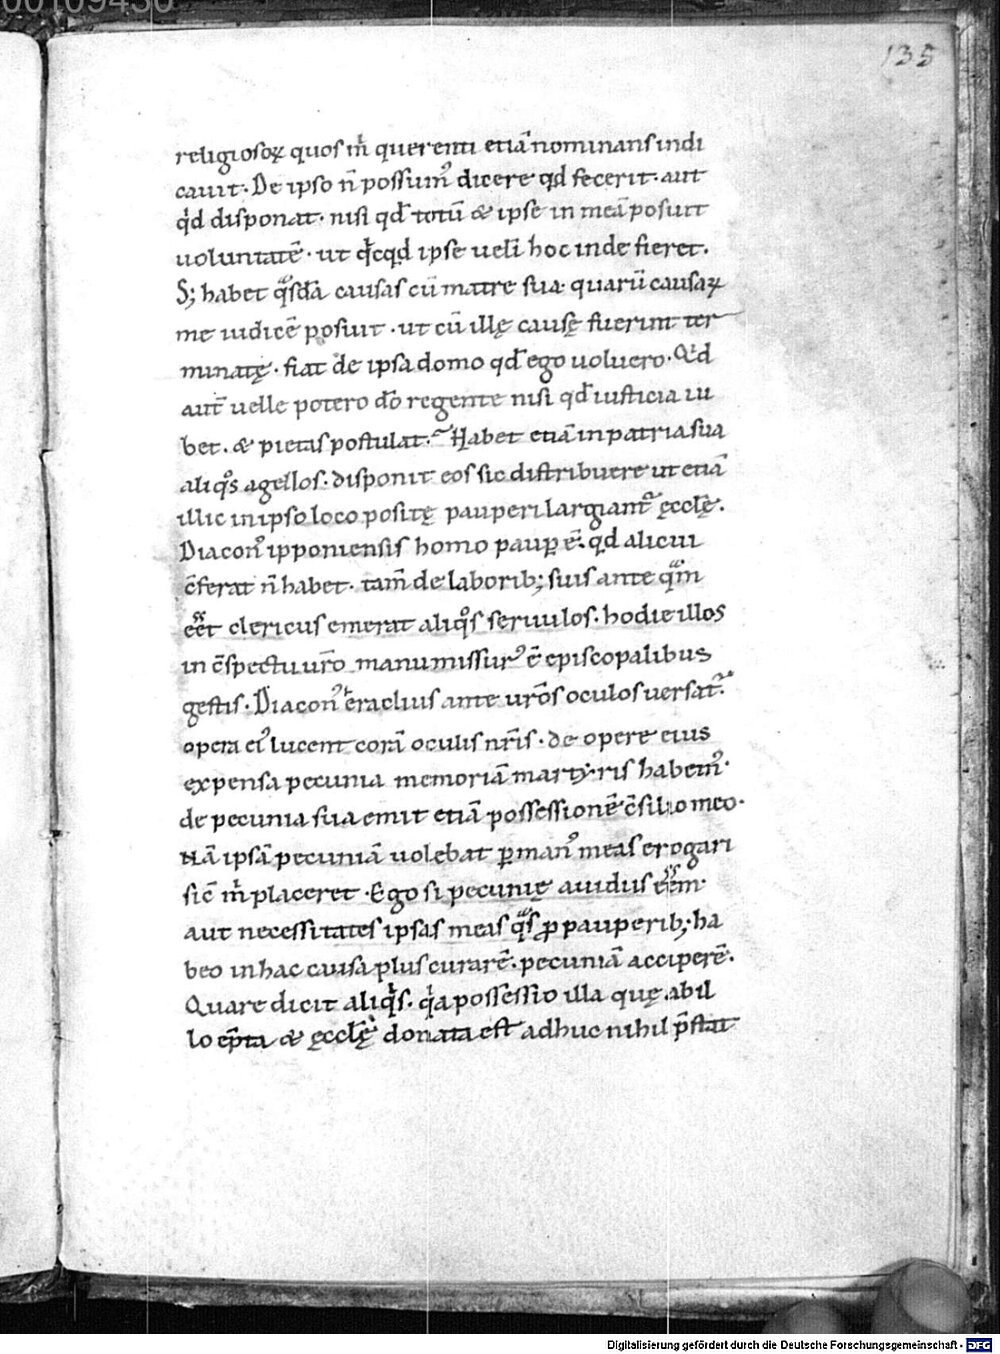 00109436
135
religiosoꝝ quos m̄ querenti etiā nominans indi
cauit. De ipso n̄ possum᾽ dicere qđ fecerit. aut
qđ disponat. nisi qđ totū & ipse in meā posuit
uoluntatē. ut qͥcqđ ipse uelī hoc inde fieret.
S; habet qͣsdā causas cū matre sua. quarū causaꝝ
me iudicē posuit. ut cū illę causę fuerint ter
minatę. fiat de ipsa domo qđ ego uoluero. Qđ
aut̄ uelle potero dō regente nisi qđ iusticia iu
bet. & pietas postulat. Habet etiā in patria sua
aliqͦs agellos. disponit eos sic distribuere ut etiā
illic in ipso loco positę pauperi largiant᷑ ęcclę̄.
Diacon᾽ ipponiensis homo paup̱ ē. qđ alicui
c̄ferat n̄ habet. tam̄ de laborib; suis ante qͣm
eēt clericus emerat aliqͦs seruulos. hodie illos
in c̄spectu ur̄o manumissur᾽ ē episcopalibus
gestis. Diacon᾽ eraclius ante ur̄os oculos uersat᷑.
opera ei᾽ lucent corā oculis nr̄is. de opere eius
expensa pecunia memoriā martyris habem᾽.
de pecunia sua emit etiā possessionē c̄silio meo.
Nā ipsā pecuniā uolebat ꝑ man᾽ meas erogari
sic̄ m̄ placeret. Ego si pecunię auidus eēm.
aut necessitates ipsas meas qͣs ꝓ pauperib; ha
beo in hac causa plus curarē. pecuniā acciperē.
Quare dicit aliqͥs. qͥa possessio illa quę ab il
lo ēpta & ęcclę̄ donata est adhuc nihil p̄stat
Digitalisierung gefördert durch die Deutsche Forschungsgemeinschaft - DFG